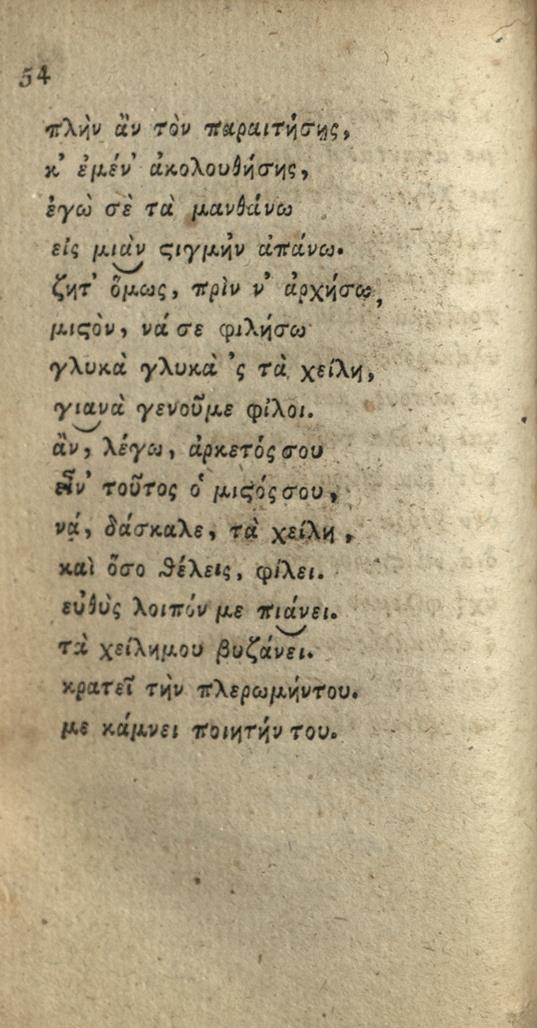 54
πλὴν ἂν τὸν παραιτήσῃς,
κ' ἐμέν' ἀκολουθήσῃς,
ἐγὼ σὲ τὰ μανθάνω
εἰς μιὰν ϛιγμὴν ἀπάνω.
ζητ' ὅμως, πρὶν ν' ἀρχήσω,
μιϛὸν, νά σε φιλήσω
γλυκὰ γλυκὰ 'ς τὰ χείλη,
γιανὰ γενοῦμε φίλοι.
ἂν, λέγω, ἀρκετός σου
εἶν' τοῦτος ὁ μιϛός σου,
νά, δάσκαλε, τὰ χείλη,
καὶ ὅσο θέλεις, φίλει.
εὐθὺς λοιπόν με πιάνει.
τὰ χείλημου βυζάνει.
κρατεῖ τὴν πλερωμήντου.
με κάμνει ποιητήν του.